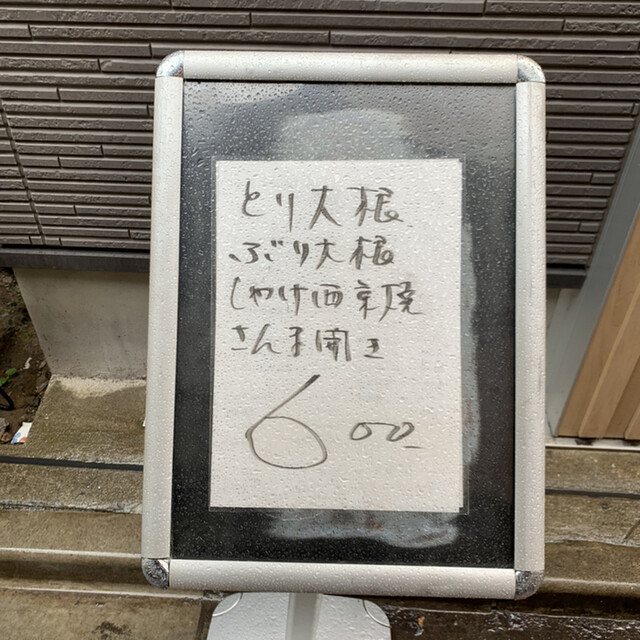 とり大根
ぶり大根
しゃけ西京焼
さんま開き
600